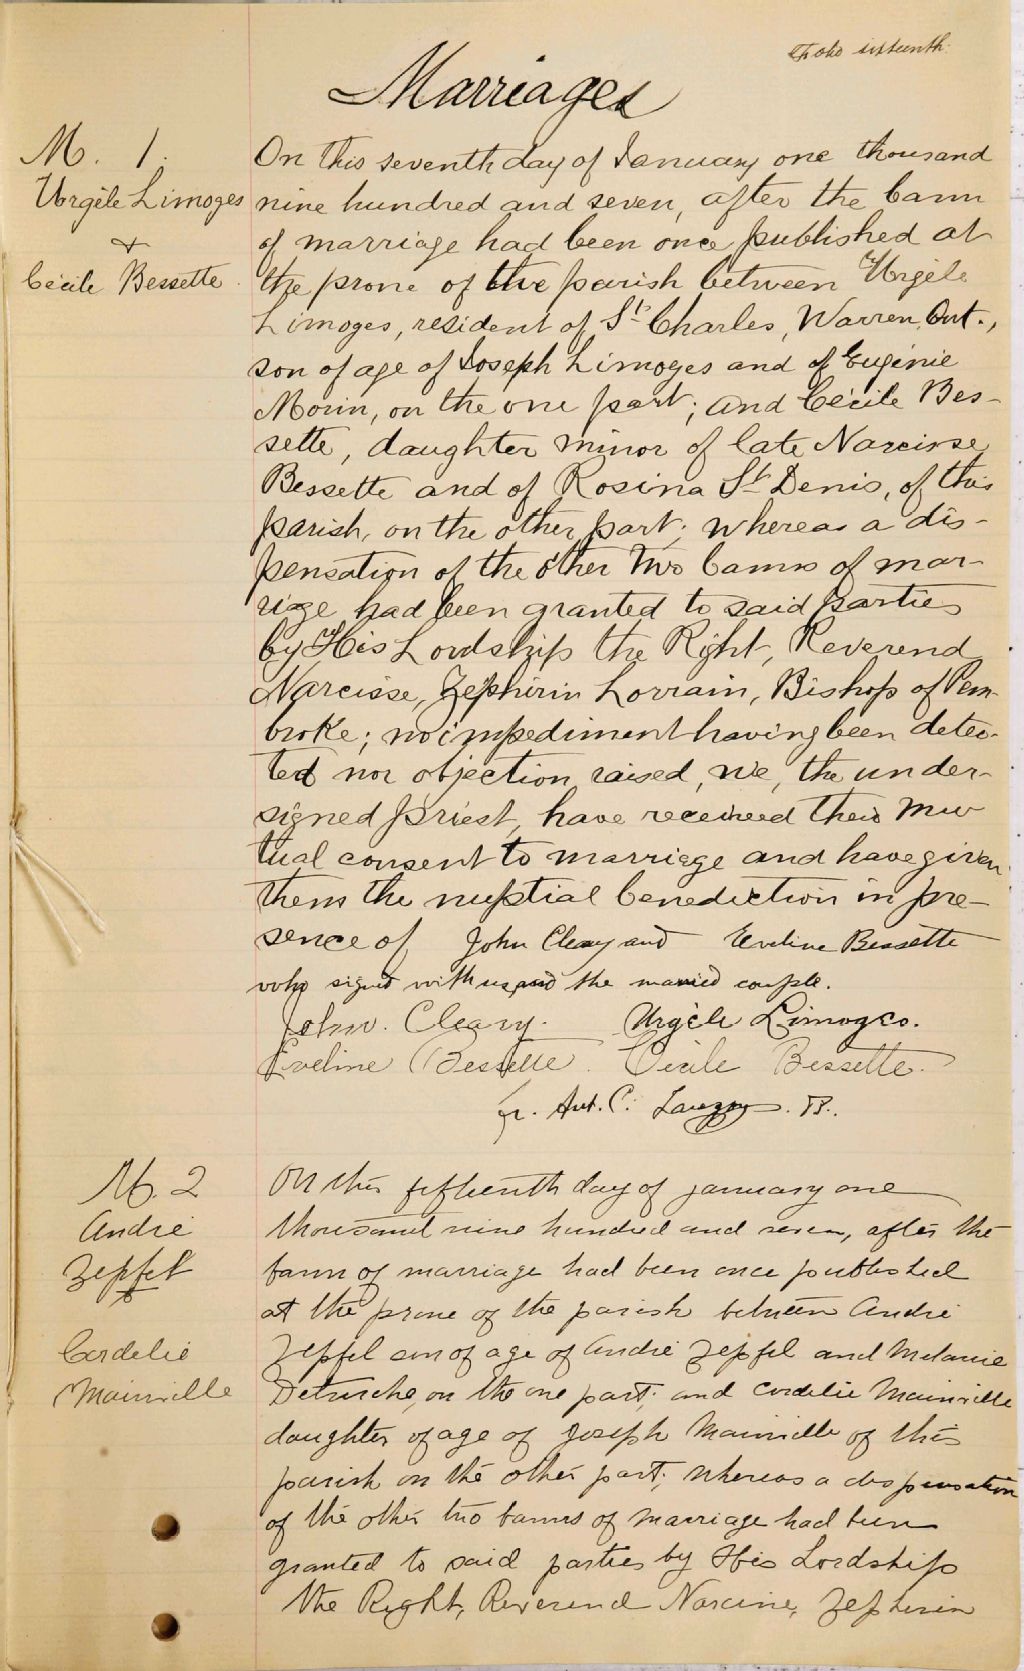 Folio sixteenth
Marriages
M. 1.
Urgèle Limoges
&
Cécile Bessette.
On this seventh day of January one thousand
nine hundred and seven, after the bann
of marriage had been once published at
the prone of the parish between Urgèle
Limoges, resident of St Charles, Warren, Ont.,
son of age of Joseph Limoges and of Eugénie
Morin, on the one part; and Cécile Bes-
sette, daughter minor of late Narcisse
Bessette and of Rosina St Denis, of this
parish, on the other part; whereas a dis-
pensation of the other two banns of mar-
riage had been granted to said parties
by His Lordship the Right, Reverend
Narcisse, Zéphirin Lorrain, Bishop of Pem-
broke; no impediment having been detec-
ted nor objection raised, we, the under-
signed priest, have received their mu
tual consent to marriage and have given
them the nuptial benediction in pre-
sence of John Cleary and Eveline Bessette
who signed with us and the married couple.
John. Cleary. Urgèle Limoges.
Eveline Bessette. Cécile Bessette.
fr. Ant. C.
M. 2
Andre
Zepfel
&
Cordelie
Mainville
On this fifteenth day of january one
thousand nine hundred and seven, after the
bann of marriage had been once published
at the prone of the parish between Andre
Zepfel son of age of Andre Zepfel and Melanie
on the one part; and Cordelie Mainville
daughter of age of Joseph Mainville of this
parish on the other part; whereas a dispensation
of the other two banns of marriage had been
granted to said parties by His Lordship
the Right, Reverend Narcisse, Zephirin